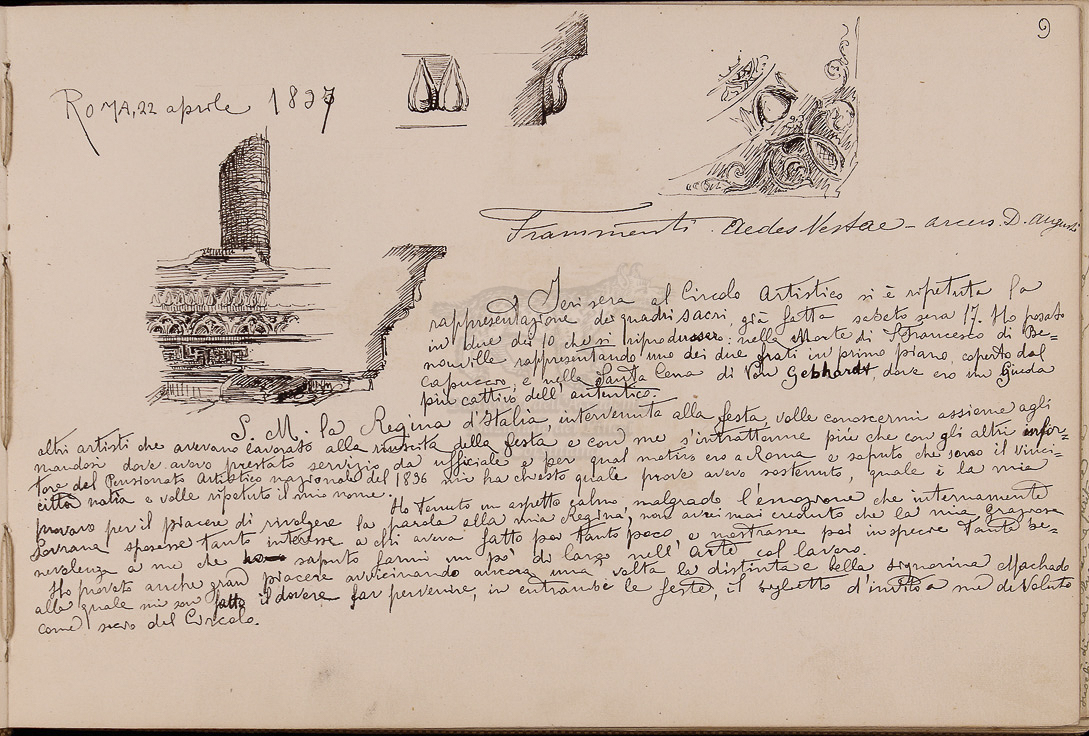 9
Roma, 22 aprile 1897
Frammenti. Aedes Vestae - arcus D. Augusti
Jeri sera al Circolo Artistico si è ripetuta la
rappresentazione dei quadri sacri, già fatta sabato sera 17. Ho posato
in due dei 10 che si riprodussero: nella Morte di S. Francesco di Be-
nouville rappresentando uno dei due frati in primo piano, coperto dal
capuccio, e nella Santa Cena di Von Gebhardt, dove ero un Giuda
più cattivo dell'autentico.
S. M. la Regina d'Italia, intervenuta alla festa, volle conoscermi assieme agli
altri artisti che avevano lavorato alla riuscita della festa e con me s'intrattenne più che con gli altri infor-
mandosi dove avevo prestato servizio da ufficiale e per qual motivo ero a Roma e saputo che sono il vinci-
tore del Pensionato Artistico nazionale del 1896 mi ha chiesto quale prove avevo sostenuto, quale è la mia
città natia e volle ripetuto il mio nome.
Ho tenuto un aspetto calmo malgrado l'emozione che internamente
provavo per il piacere di rivolgere la parola alla mia Regina, non avrei mai creduto che la mia graziosa
Sovrana spesesse tanto interesse a chi aveva fatto per tanto poco, e mostrasse poi in specie tanta be-
nevolenza a me che saputo farmi un po' di largo nell'arte col lavoro.
Ho provato anche gran piacere avvicinando ancora una volta la distinta e bella signorina Machado
alla quale mi son fatto il dovere far pervenire, in entrambe le feste, il biglietto d'invito a me devoluto
come socio del Circolo.